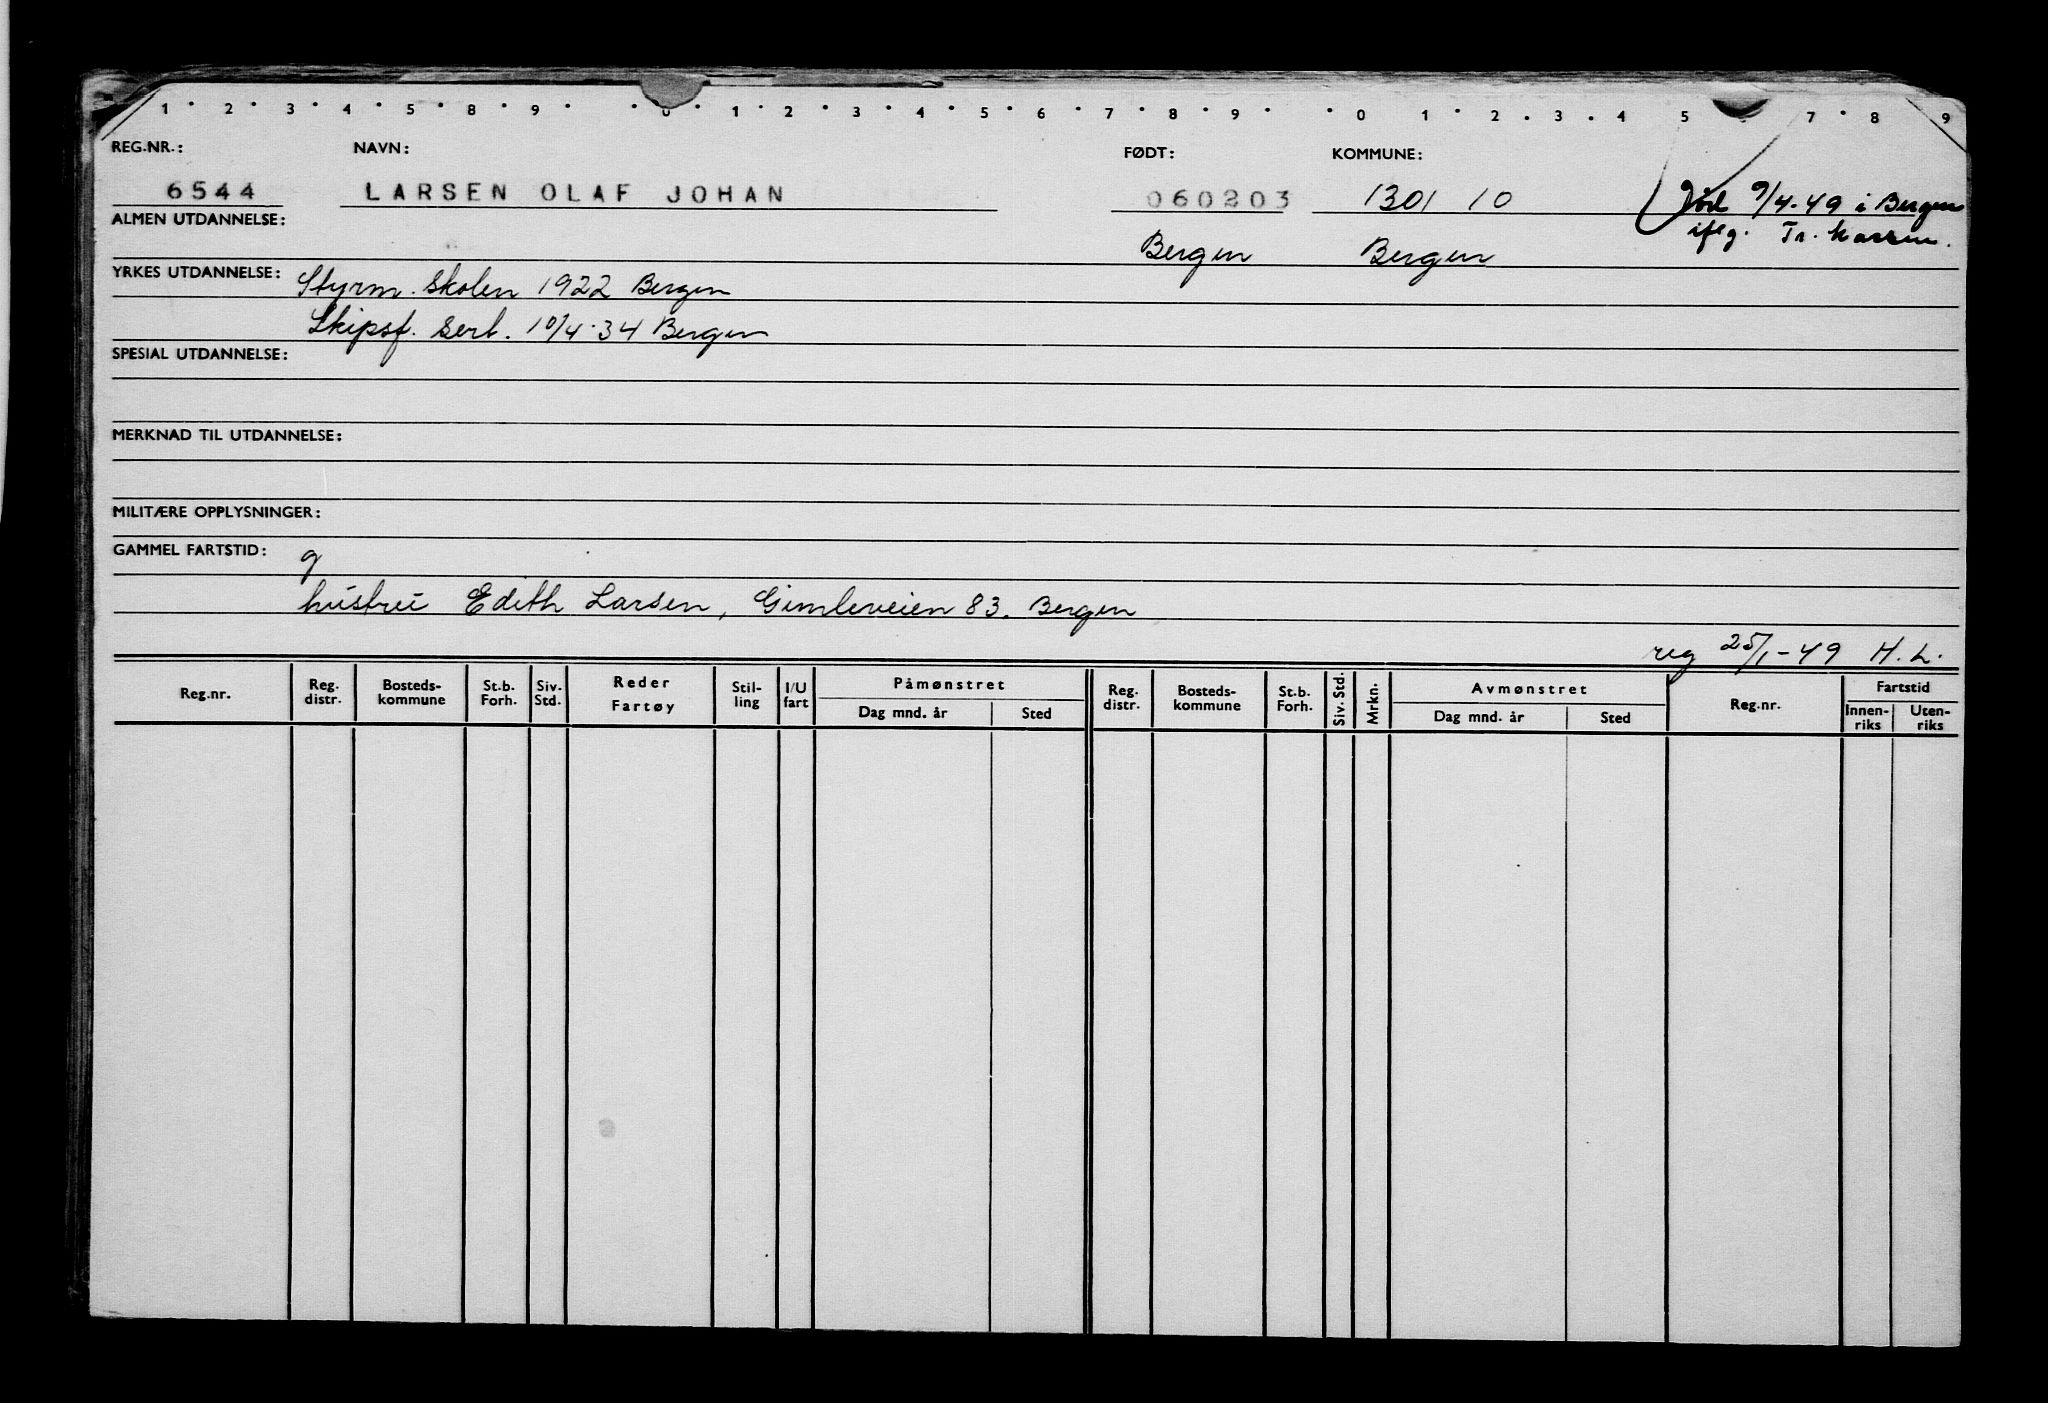 1 · 2 · 3 · 4 · 5 · 8 · 9 · · 0 · 1 · 2 · 3 · 4 · 5 · 6 · 7 · 8 · 9 · · 0 · 1 · 2 · 3 · 4 5 7 · 8 9
REG.NR.: NAVN: FØDT: KOMMUNE:
6544 LARSEN OLAF JOHAN 060203 1301 10 død 9/4-49 i Bergen
ALMEN UTDANNELSE: Bergen Bergen iflg. Tr.
YRKES UTDANNELSE: Styrm. skolen 1922 Bergen
Skipsf. sert. 10/4-34 Bergen
SPESIAL UTDANNELSE:
MERKNAD TIL UTDANNELSE:
MILITÆRE OPPLYSNINGER:
GAMMEL FARTSTID: g
hustru Edith Larsen, Gimleveien 83. Bergen
reg 25/1-49 H.L.
Reg.nr. Reg. distr. Bosteds-kommune St.b. Forh. Siv. Std. Reder Fartøy Stil-ling I/U fart Påmønstret Dag mnd. år Sted Reg. distr. Bosteds-kommune St.b. Forh. Siv. Std. Mrkn. Avmønstret Dag mnd. år Sted Reg.nr. Fartstid Innen-riks Uten-riks